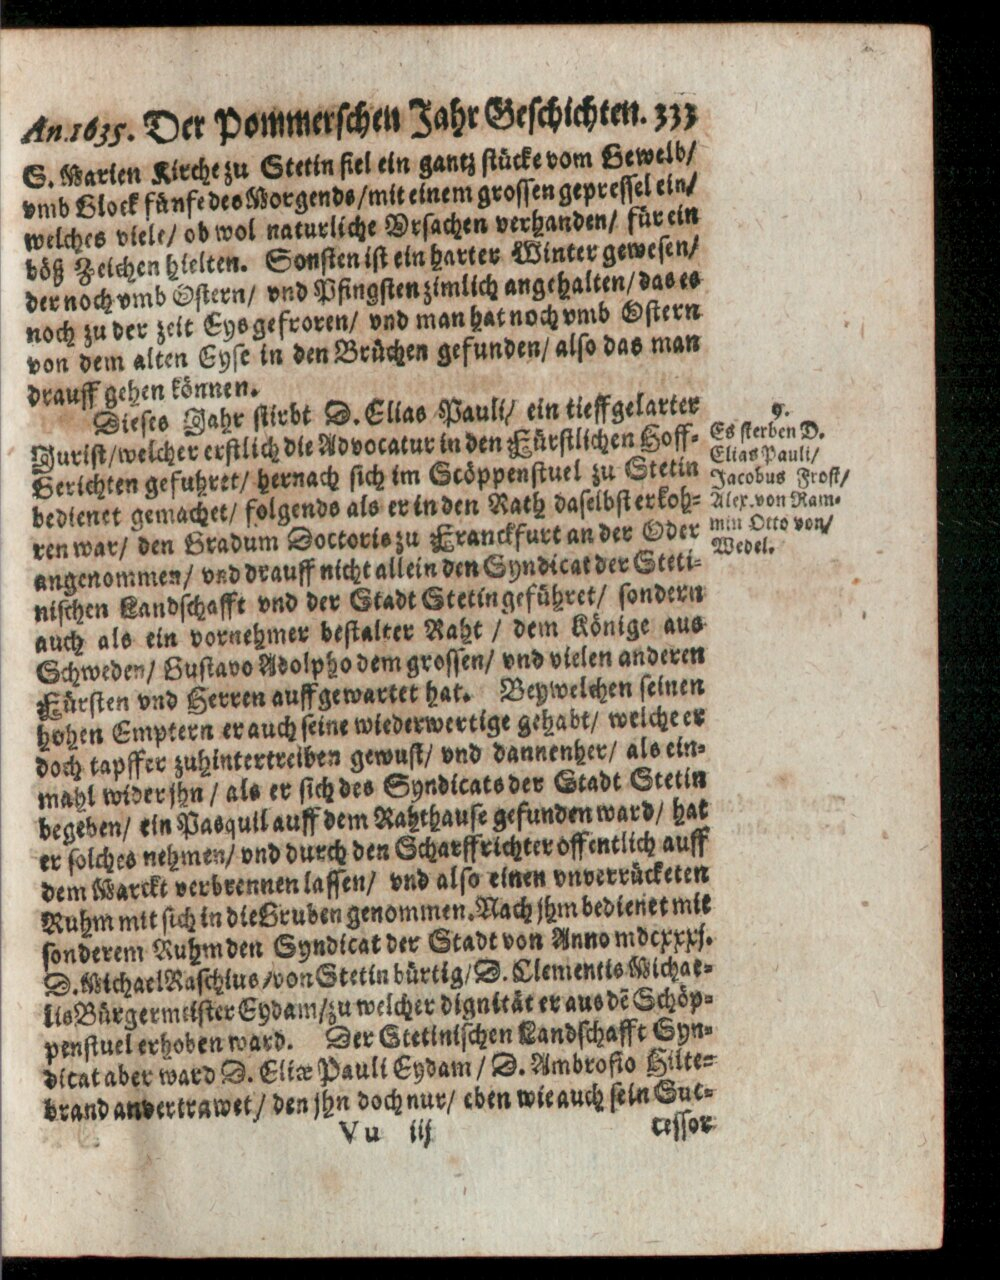 An. 1635. Der Pommerschen Jahr Geschichten. 333
S. Marien Kirche zu Stetin fiel ein gantz stücke vom Gewelb/
vmb Glock fünfe des Morgends/ mit einem grossen gepressel ein/
welches viele/ ob wol naturliche Vrsachen verhanden/ für ein
böß Zeichen hielten. Sonsten ist ein harter Winter gewesen/
der noch vmb Ostern/ vnd Pfingsten zimlich angehalten/ das es
noch zu der zeit Eys gefroren/ vnd man hat noch vmb Ostern
von dem alten Eyse in den Brüchen gefunden/ also das man
drauff gehen können.
Dieses Jahr stirbt D. Elias Pauli/ ein tieffgelarter
Jurist/ welcher erstlich die Advocatur in den Fürstlichen Hoff-
Gerichten gefuhret/ hernach sich im Scöppenstuel zu Stetin
bedienet gemachet/ folgends als er in den Rath daselbst erkoh-
ren war/ den Gradum Doctoris zu Franckfurt an der Oder
angenommen/ vnd drauff nicht allein den Syndicat der Steti-
nischen Landschafft vnd der Stadt Stetin geführet/ sondern
auch als ein vornehmer bestalter Raht / dem Könige aus
Schweden/ Gustavo Adolpho dem grossen/ vnd vielen anderen
Fürsten vnd Herren auffgewartet hat. Bey welchen seinen
hohen Emptern er auch seine wiederwertige gehabt/ welche er
doch tapffer zuhintertreiben gewust/ vnd dannenher/ als ein-
mahl wider jhn / als er sich des Syndicats der Stadt Stetin
begeben/ ein Pasquil auff dem Rahthause gefunden ward/ hat
er solches nehmen/ vnd durch den Scharffrichter öffentlich auff
dem Marckt verbrennen lassen/ vnd also einen vnverrücketen
Ruhm mit sich in die Gruben genommen. Nach jhm bedienet mit
sonderem Ruhm den Syndicat der Stadt von Anno mdcxxxj.
D. Michael Raschius/ von Stetin bürtig/ D. Clementis Michae-
lis Bürgermeister Eydam/ zu welcher dignität er aus dē Schöp-
penstuel erhoben ward. Der Stetinischen Landschafft Syn-
dicat aber ward D. Eliæ Pauli Eydam / D. Ambrosio Hilte-
brand anvertrawet/ den jhn doch nur/ eben wie auch sein Suc-
Vu iij cessor
9.
Es sterben D.
Elias Pauli/
Jacobus Frost/
Alex. von Ram-
min Otto von/
Wedel.